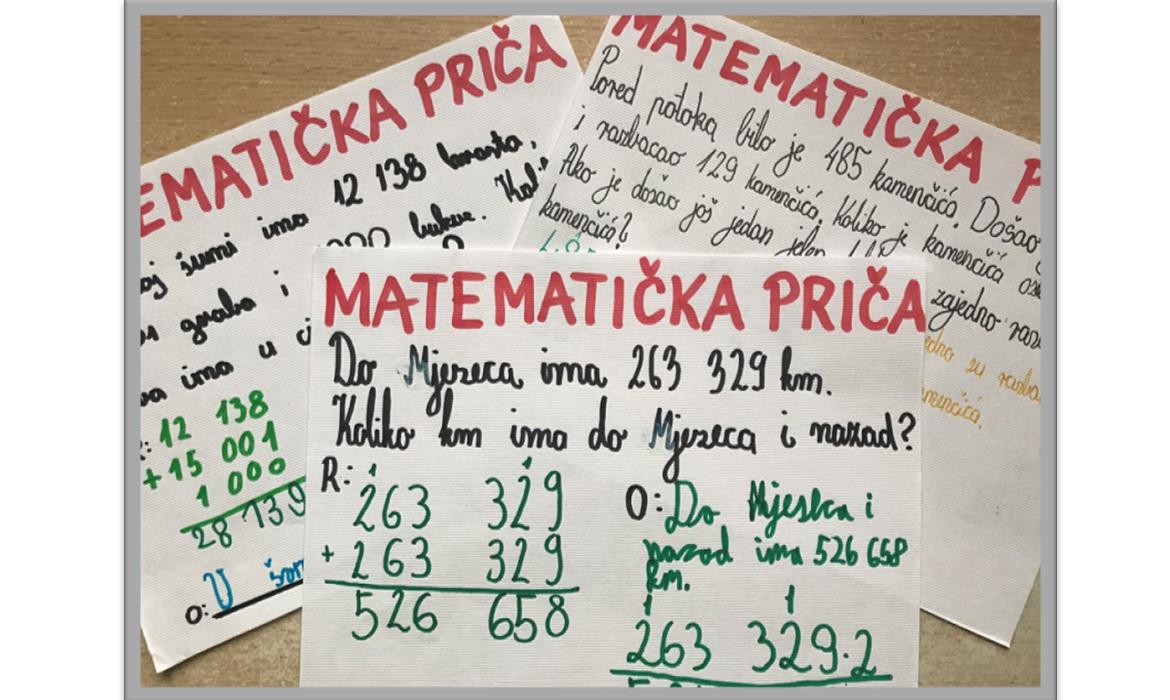 EMATIČKA PRIČA
oj šumi ima 12 138 hrasta,
000 bukve. Kol
graba i
ima u
12 138
+ 15 001
1 000
28 139
O: U šum
MATEMATIČKA P
Pored potoka bilo je 485 kamenčića. Došao
i razbacao 129 kamenčića. Koliko je kamenčića os
Ako je došao još jedan jelen zajedno raz
kamenčić?
edno su razba
menčića.
MATEMATIČKA PRIČA
Do Mjeseca ima 263 329 km.
Koliko km ima do Mjeseca i nazad?
R: 1 1
263 329
+ 263 329
526 658
O: Do Mjeseca i
nazad ima 526 658
km.
1 1
263 329·2